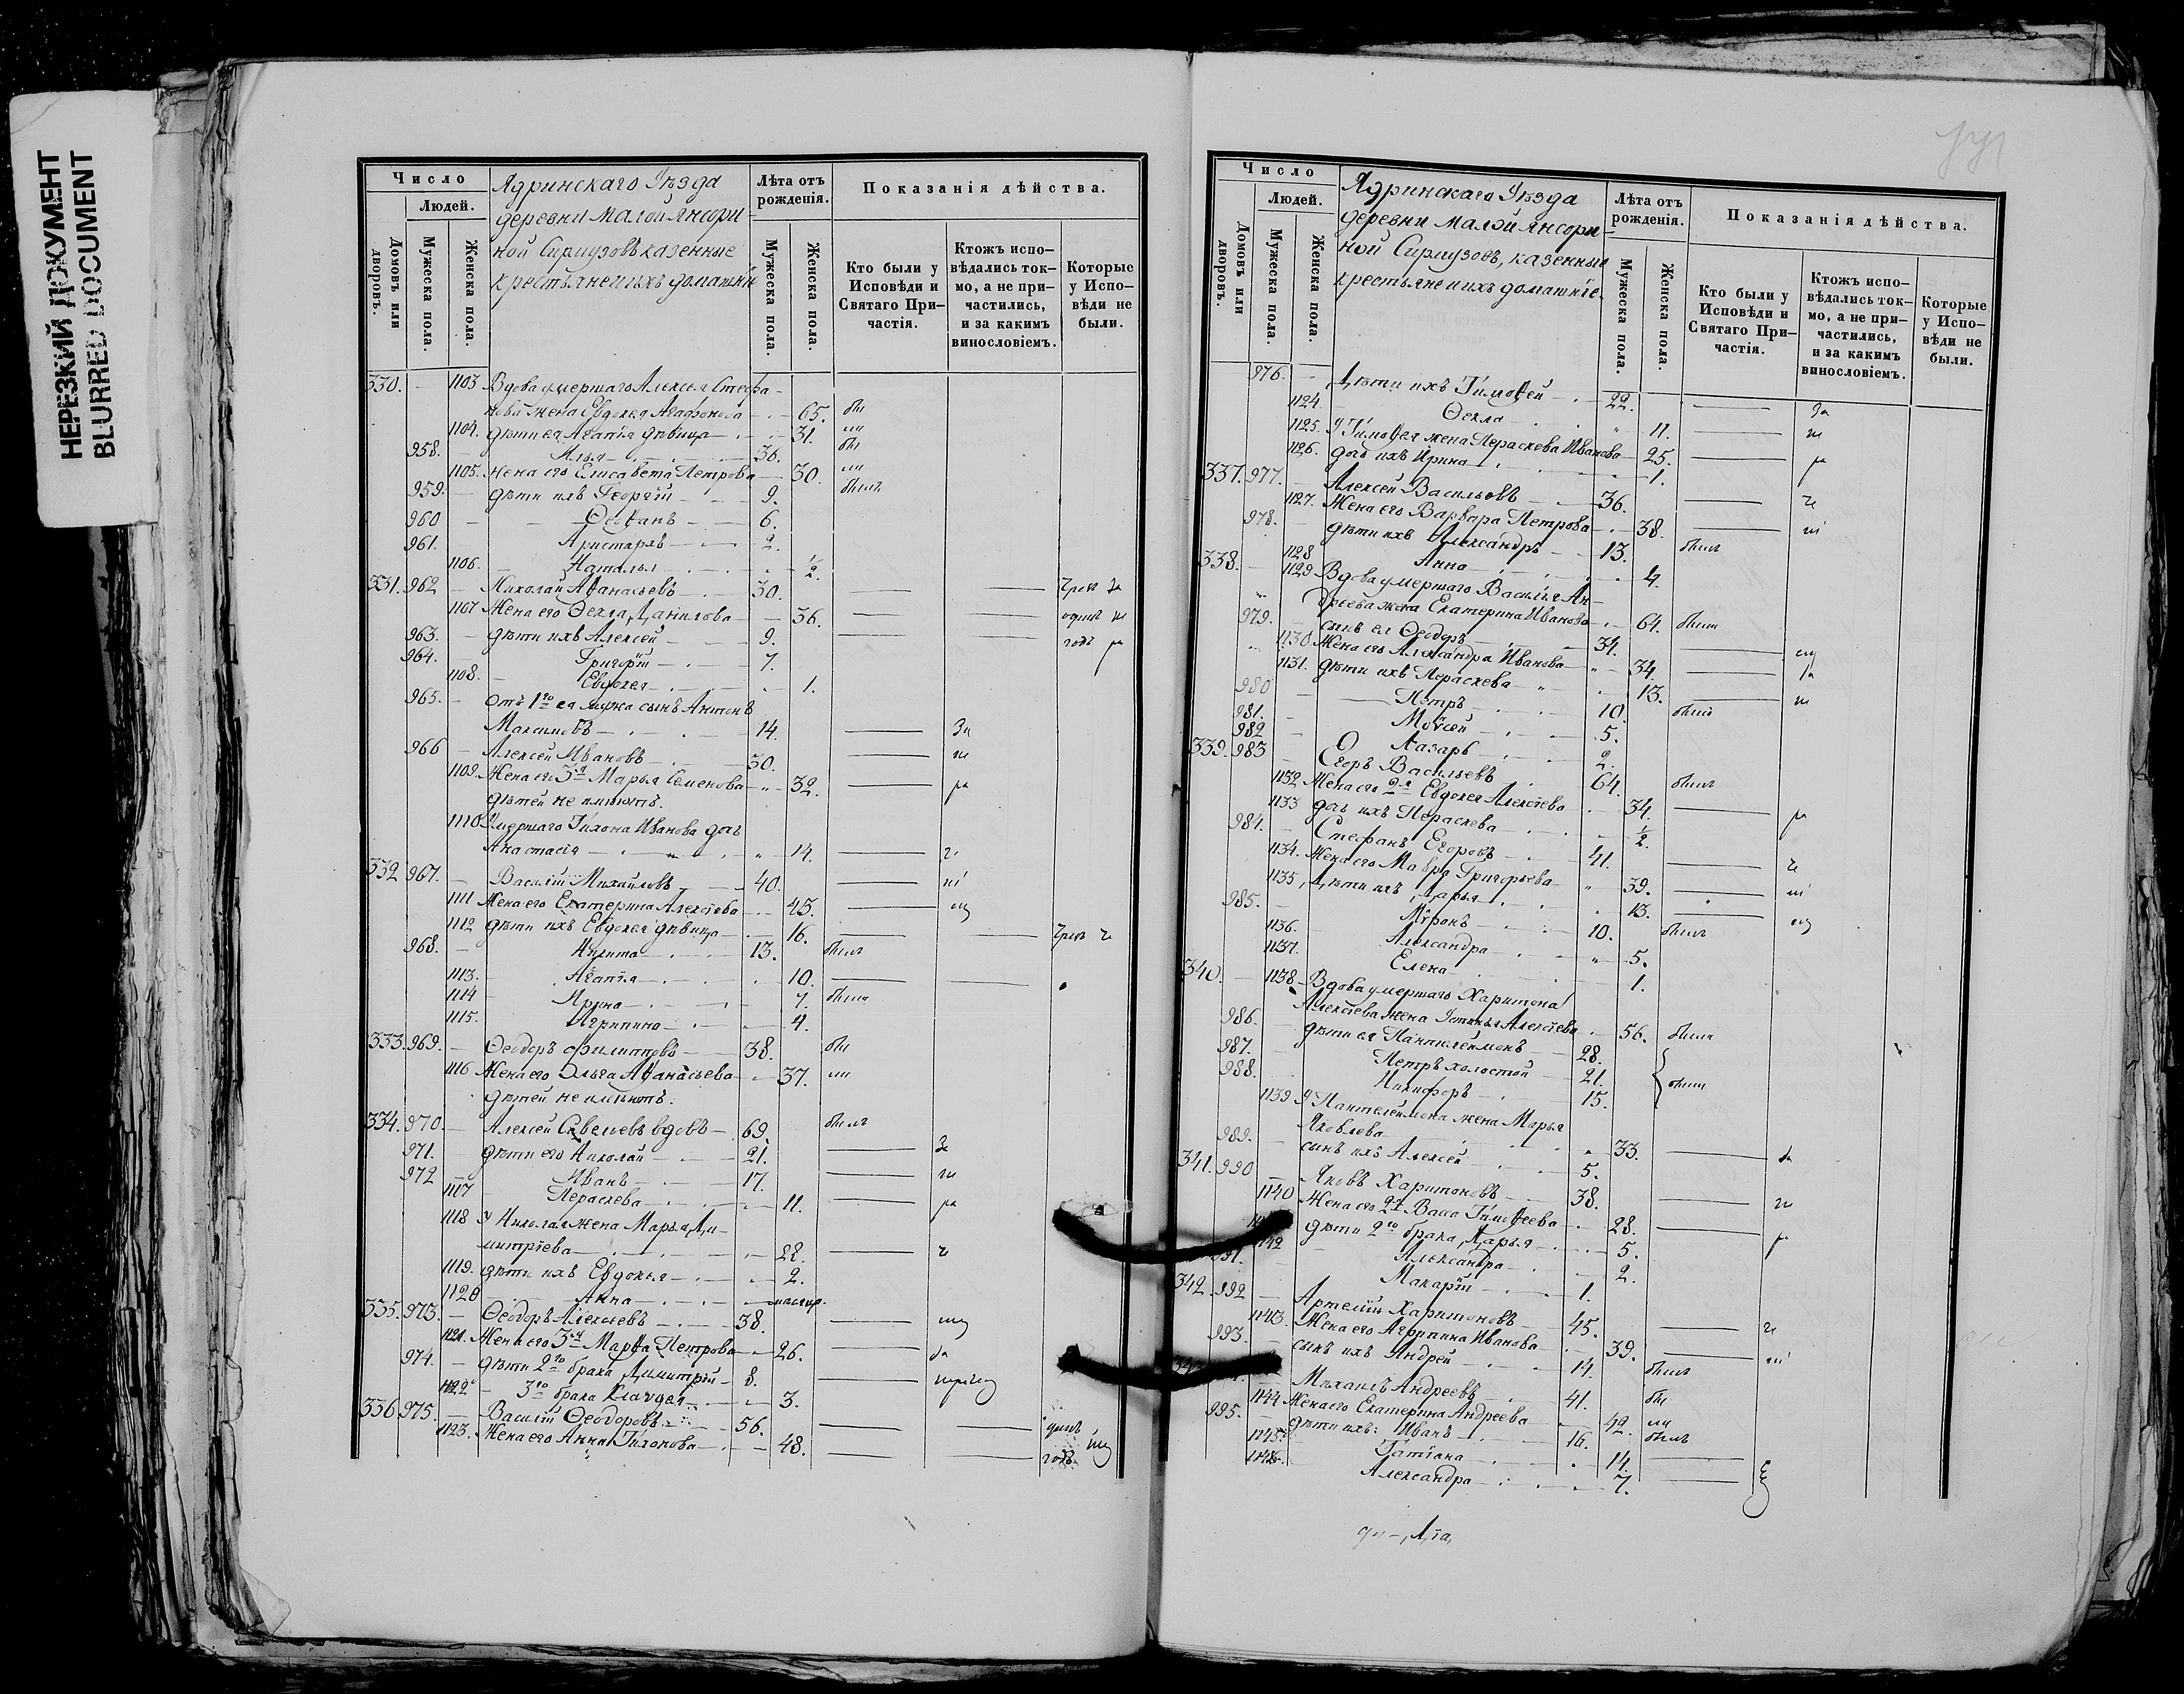 НЕРЕЗКИЙ ДОКУМЕНТ
BLURRED DOCUMENT
Число
Людей.
Домовъ или дворовъ.
Мужеска пола.
Женска пола.
Ядринскаго Уѣзда
деревни Малой Янсори-
ной Сирмузовъ казенные
крестьяне и ихъ домашніе
Лѣта отъ рожденія.
Мужеска пола.
Женска пола.
Показанія дѣйства.
Кто были у Исповѣди и Святаго При-частія.
Ктожъ испо-вѣдались ток-мо, а не при-частились, и за какимъ винословіемъ.
Которые у Испо-вѣди не были.
330. — 1103 Вдова умершаго Алексѣя Стефа-
нова жена Евдокея Агафонова — 65. бы
1104. дѣти ея Агапія дѣвица — 31. ли
958. — Илья — 36. бы
1105. жена его Елисавета Петрова — 30. ли
959. — дѣти ихъ Георгій — 9. былъ
960 — Ѳеофанъ — 6.
961. Аристархъ — 2.
1106. — Наталья — ½.
331. 962 — Николай Аѳанасьевъ — 30. чрез за
1107 Жена его Ѳекла Данилова — 36. одинъ не
963. — дѣти ихъ Алексей — 9. годъ ра
964. — Григорій — 7.
1108. — Евдокея — 1.
965. — Отъ 1го ея мужа сынъ Антонъ
Максимовъ — 14. За
966 — Алексей Ивановъ — 30. не
1109. Жена его 3я Марья Семенова — 32. ра
дѣтей не имѣютъ.
1110. Умершаго Тихона Иванова дочь
Анастасія — 14. че
332 967. — Василій Михайловъ — 40. ні
1111 Жена его Екатерина Алексѣева — 45. ем
1112 дѣти ихъ Евдокея дѣвица — 16. чрез че
968. — Никита — 13. былъ
1113. — Агапія — 10.
1114 — Ирина — 7. была
1115. Агрипина — 4.
333. 969. — Ѳеодоръ Филиповъ — 38. бы
1116 Жена его Ольга Аѳанасьева — 37. ли
дѣтей не имѣютъ.
334. 970. — Алексей Савельевъ вдовъ — 69. былъ
971. — дѣти его Николай — 21. За
972 — Иванъ — 17. не
1117 — Параскева — 11. ра
1118 У Николая жена Марья Ди-
митріева — 22. че
1119. дѣти ихъ Евдокья — 2.
1120 — Анна —
335. 973. — Ѳеодоръ Алексѣевъ — 38.
1121. Жена его 3я Марѳа Петрова — 26.
974. — дѣти 2го брака Димитрій — 8.
1122 — 3го брака Клавдея — 3.
336. 975. — Василій Ѳеодоровъ — 56. одинъ
1123. Жена его Анна Тихонова — 48. годъ
Число
Людей.
Домовъ или дворовъ.
Мужеска пола.
Женска пола.
Ядринскаго Уѣзда
деревни Малой Янсори-
ной Сирмузовъ, казенные
крестьяне и ихъ домашніе.
Лѣта отъ рожденія.
Мужеска пола.
Женска пола.
Показанія дѣйства.
Кто были у Исповѣди и Святаго При-частія.
Ктожъ испо-вѣдались ток-мо, а не при-частились, и за какимъ винословіемъ.
Которые у Испо-вѣди не были.
976. — Дѣти ихъ Тимоѳей — 22. За
1124 Ѳекла — 11. не
1125. У Тимоѳея жена Параскева Иванова — 25. ра
1126. дочь ихъ Ирина — 1.
337. 977. — Алексей Васильевъ — 36. че
1127. Жена его Варвара Петрова — 38. ні
978. — дѣти ихъ Александръ — 13. былъ
1128 Анна — 4.
338. — 1129 Вдова умершаго Василія Ан-
дреева жена Екатерина Иванова — 64. была
979. — сынъ ея Ѳеодоръ — 34. ем
1130 Жена его Александра Иванова — 34. за
1131. дѣти ихъ Параскева — 13. не
980 — Петръ — 10. былъ
981. — Моѵсей — 5.
982 — Лазарь — 2.
339. 983 Егоръ Васильевъ — 64. былъ
1132 Жена его 2я Евдокея Алексѣева — 34. ра
1133 дочь ихъ Параскева — ½.
984. — Стефанъ Егоровъ — 41. че
1134. Жена его Мавра Григорьева — 39. ні
1135, Дѣти ихъ Дарья — 13. ем
985. — Миронъ — 10. былъ
1136. Александра — 5.
1137. Елена — 1.
340. — 1138 Вдова умершаго Харитона
Алексѣева жена Устинья Алексѣева — 56. была
986. дѣти ея Пантилеймонъ — 28.
987. — Петръ холостой — 21. были
988. Никифоръ — 15.
1139 У Пантелеймона жена Марья
Яковлева — 33. за
989. — сынъ ихъ Алексей — 5.
341. 990 — Яковъ Харитоновъ — 38. не
1140 Жена его 2я Васса Тимоѳеева — 28. ра
дѣти 2го брака, Дарья — 5.
1142 Александра — 2.
991. — Макарій — 1.
342. 992 — Артемій Харитоновъ — 45. че
1143. Жена его Агрипина Иванова — 39. ні
993. — сынъ ихъ Андрей — 14. былъ
— Михаилъ Андреевъ — 41. бы
1144 Жена его Екатерина Андреева — 42. ли
995. — дѣти ихъ: Иванъ — 16. былъ
1145. Татіана — 14.
1146. Александра — 7.